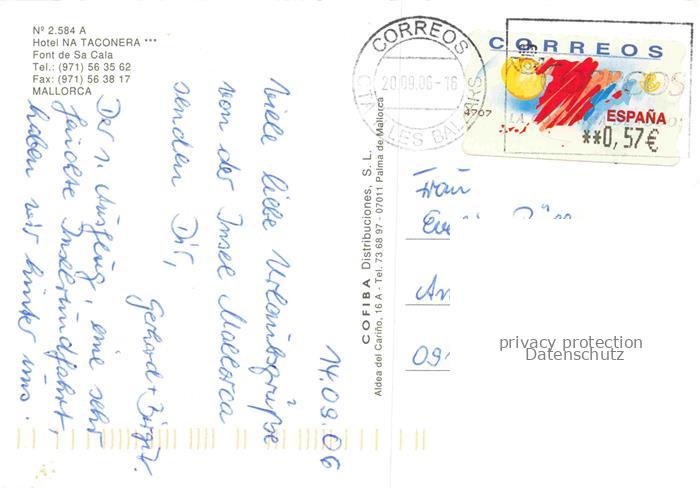 Nº 2.584 A
Hotel NA TACONERA ***
Font de Sa Cala
Tel.: (971) 56 35 62
Fax: (971) 56 38 17
MALLORCA
14.09.06
Viele liebe Urlaubsgrüße
von der Insel Mallorca
senden Dir,
Gerhard + Birgit.
Der 1. Ausflug, eine sehr
schöne Inselrundfahrt,
haben wir hinter uns.
COFIBA Distribuciones, S. L.
Aldea del Cariño, 16 A - Tel. 73 68 97 - 07011 Palma de Mallorca
CORREOS
20.09.06-16
BALEARS
CORREOS
4707
ESPAÑA
**0,57€
Frau
An
09
privacy protection
Datenschutz